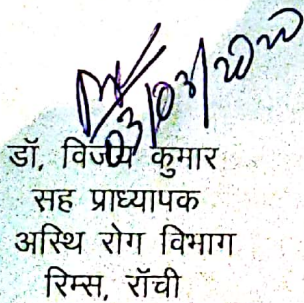 03/03/2020
डॉ, विजय कुमार
सह प्राध्यापक
अस्थि रोग विभाग
रिम्स, राँची